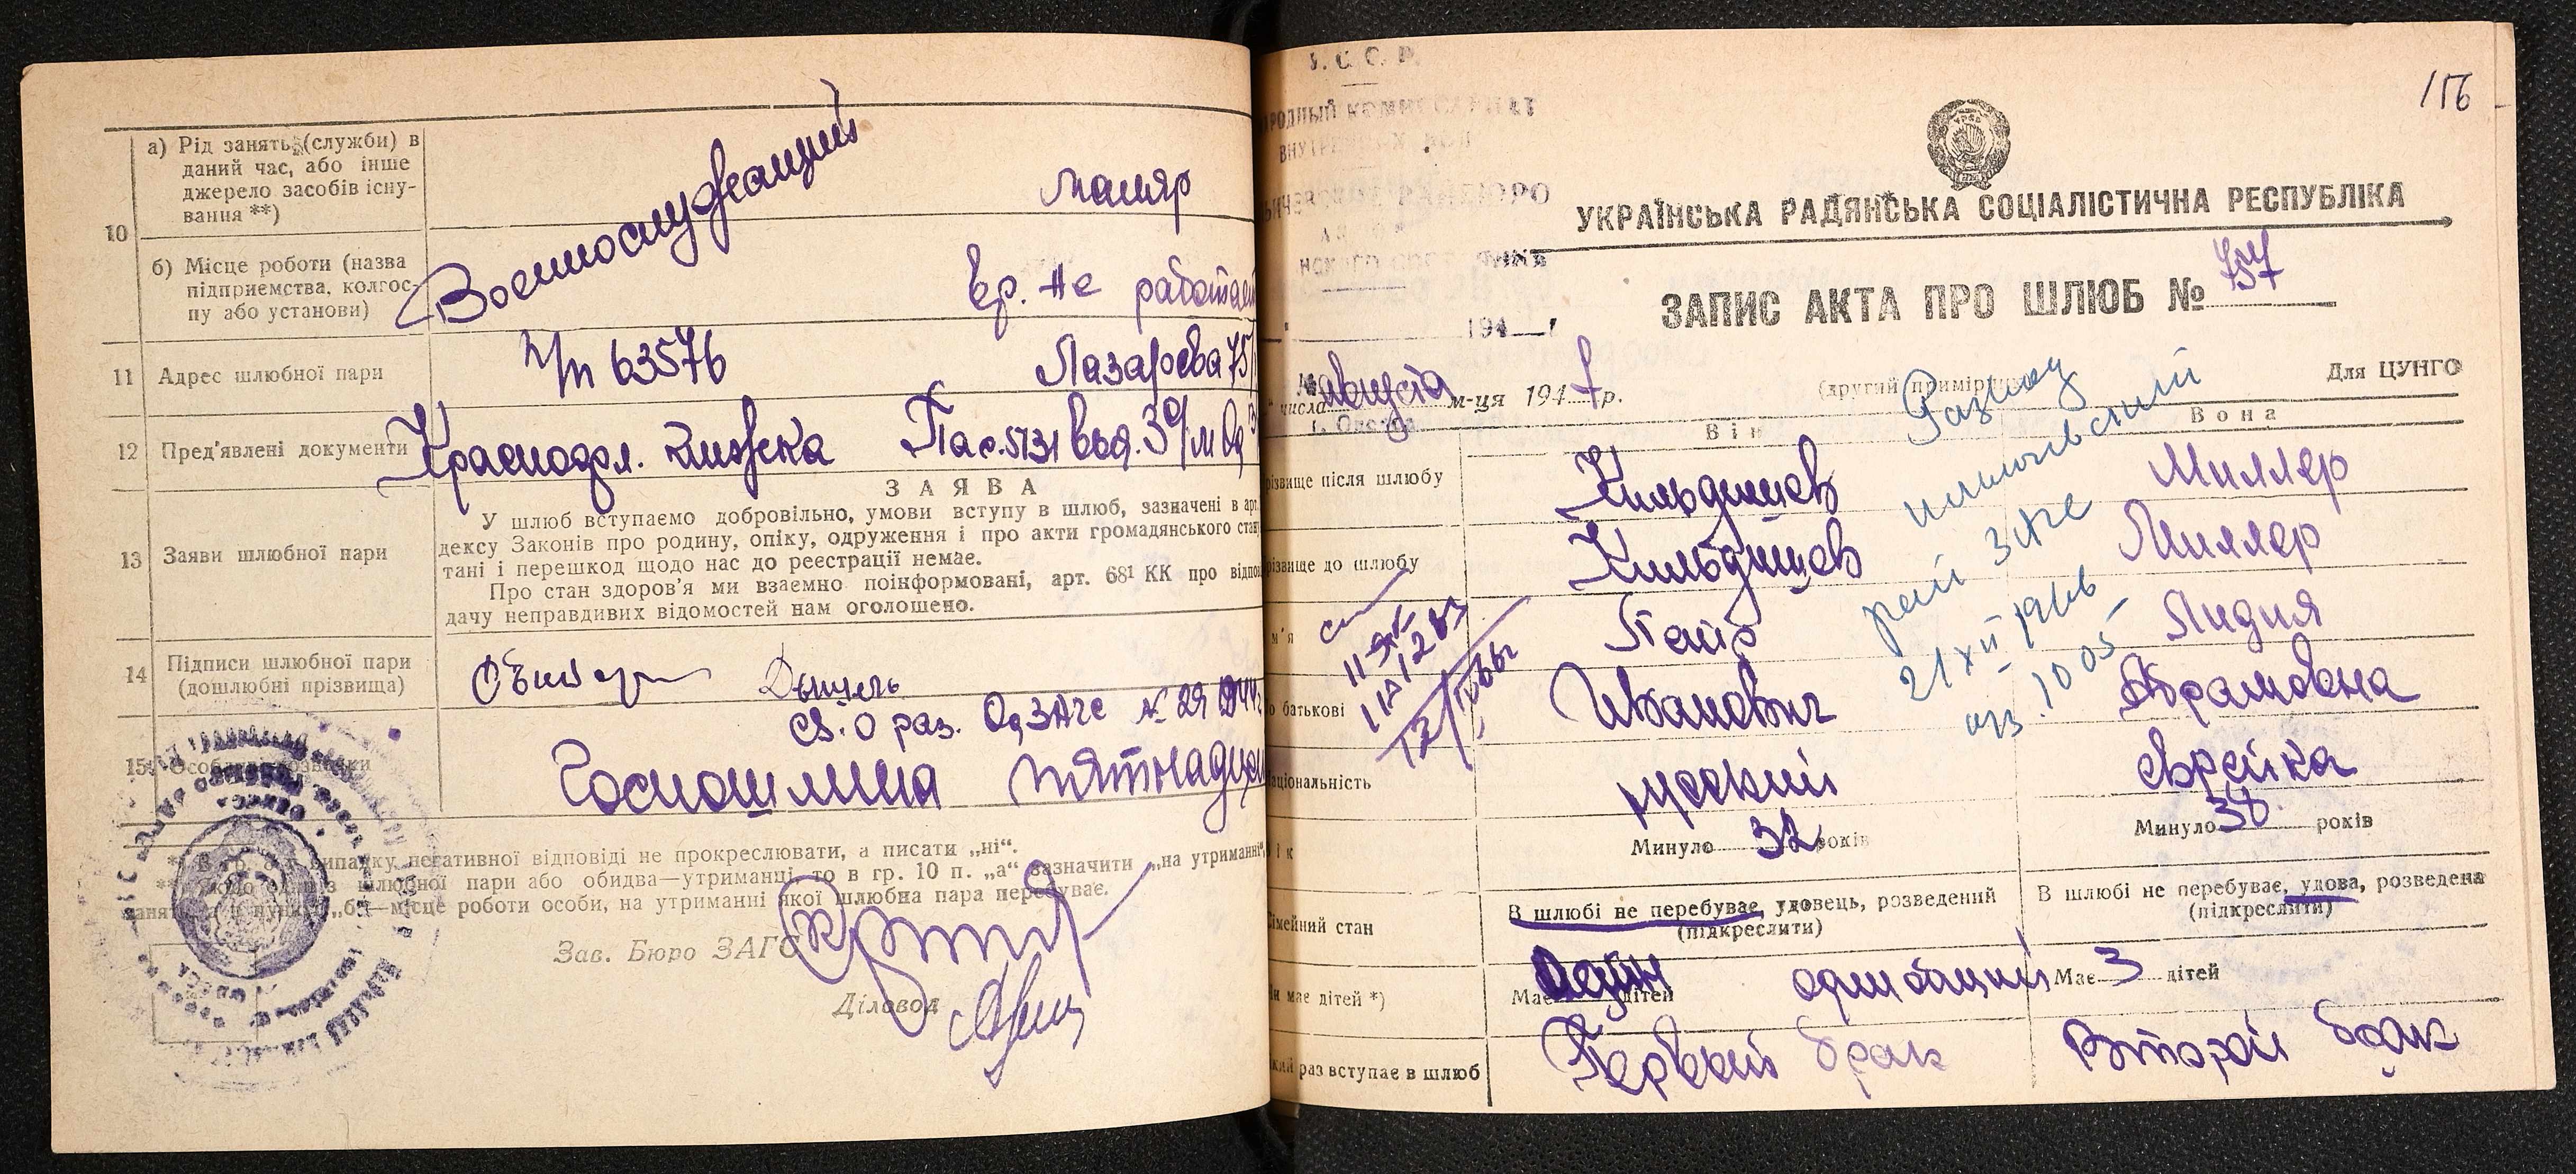 а) Рід занять (служби) в
даний час, або інше
джерело засобів існу-
вання **)
10
Военнослужащий
маляр
б) Місце роботи (назва
підприємства, колгос-
пу або установи)
вр. не работает
11 Адрес шлюбної пари
п/п 63576 Лазарева 75
12 Пред'явлені документи
Красноарм. книжка Пас. 5131 выд. 3 о/м Од
ЗАЯВА
13 Заяви шлюбної пари
У шлюб вступаємо добровільно, умови вступу в шлюб, зазначені в арт.
дексу Законів про родину, опіку, одруження і про акти громадянського стану
тані і перешкод щодо нас до реєстрації немає.
Про стан здоров'я ми взаємно поінформовані, арт. 68¹ КК про відпов
дачу неправдивих відомостей нам оголошено.
14 Підписи шлюбної пари
(дошлюбні прізвища)
св. о раз. Од ЗАГС № 29 1944г
15
Госпошлина пятнадцать
*) В гр. 8 у випадку негативної відповіді не прокреслювати, а писати „ні“.
**) Якщо один з шлюбної пари або обидва—утриманці, то в гр. 10 п. „а“ зазначити „на утриманні“,
„б“—місце роботи особи, на утриманні якої шлюбна пара перебуває.
Зав. Бюро ЗАГС
Діловод
У. С. С. Р.
НАРОДНЫЙ КОМИССАРИАТ
ВНУТРЕННИХ ДЕЛ
194 г.
156
УКРАЇНСЬКА РАДЯНСЬКА СОЦІАЛІСТИЧНА РЕСПУБЛІКА
ЗАПИС АКТА ПРО ШЛЮБ № 757
Для ЦУНГО
(другий примірник)
числа августа м-ця 194 р.
г. Одесса
Він Вона
Развод
ильичевский
рай ЗАГС
21 XII 1966
а/з 1005
різвище після шлюбу Кильдишев Миллер
різвище до шлюбу Кильдишев Миллер
м'я Петр Лидия
о батькові Иванович Абрамовна
аціональність русский еврейка
ік Минуло 32 років Минуло 38 років
імейний стан В шлюбі не перебуває, удовець, розведений В шлюбі не перебуває, удова, розведена
(підкреслити) (підкреслити)
и має дітей *) Має один дітей Має 3 дітей
кий раз вступає в шлюб Первый брак Второй брак